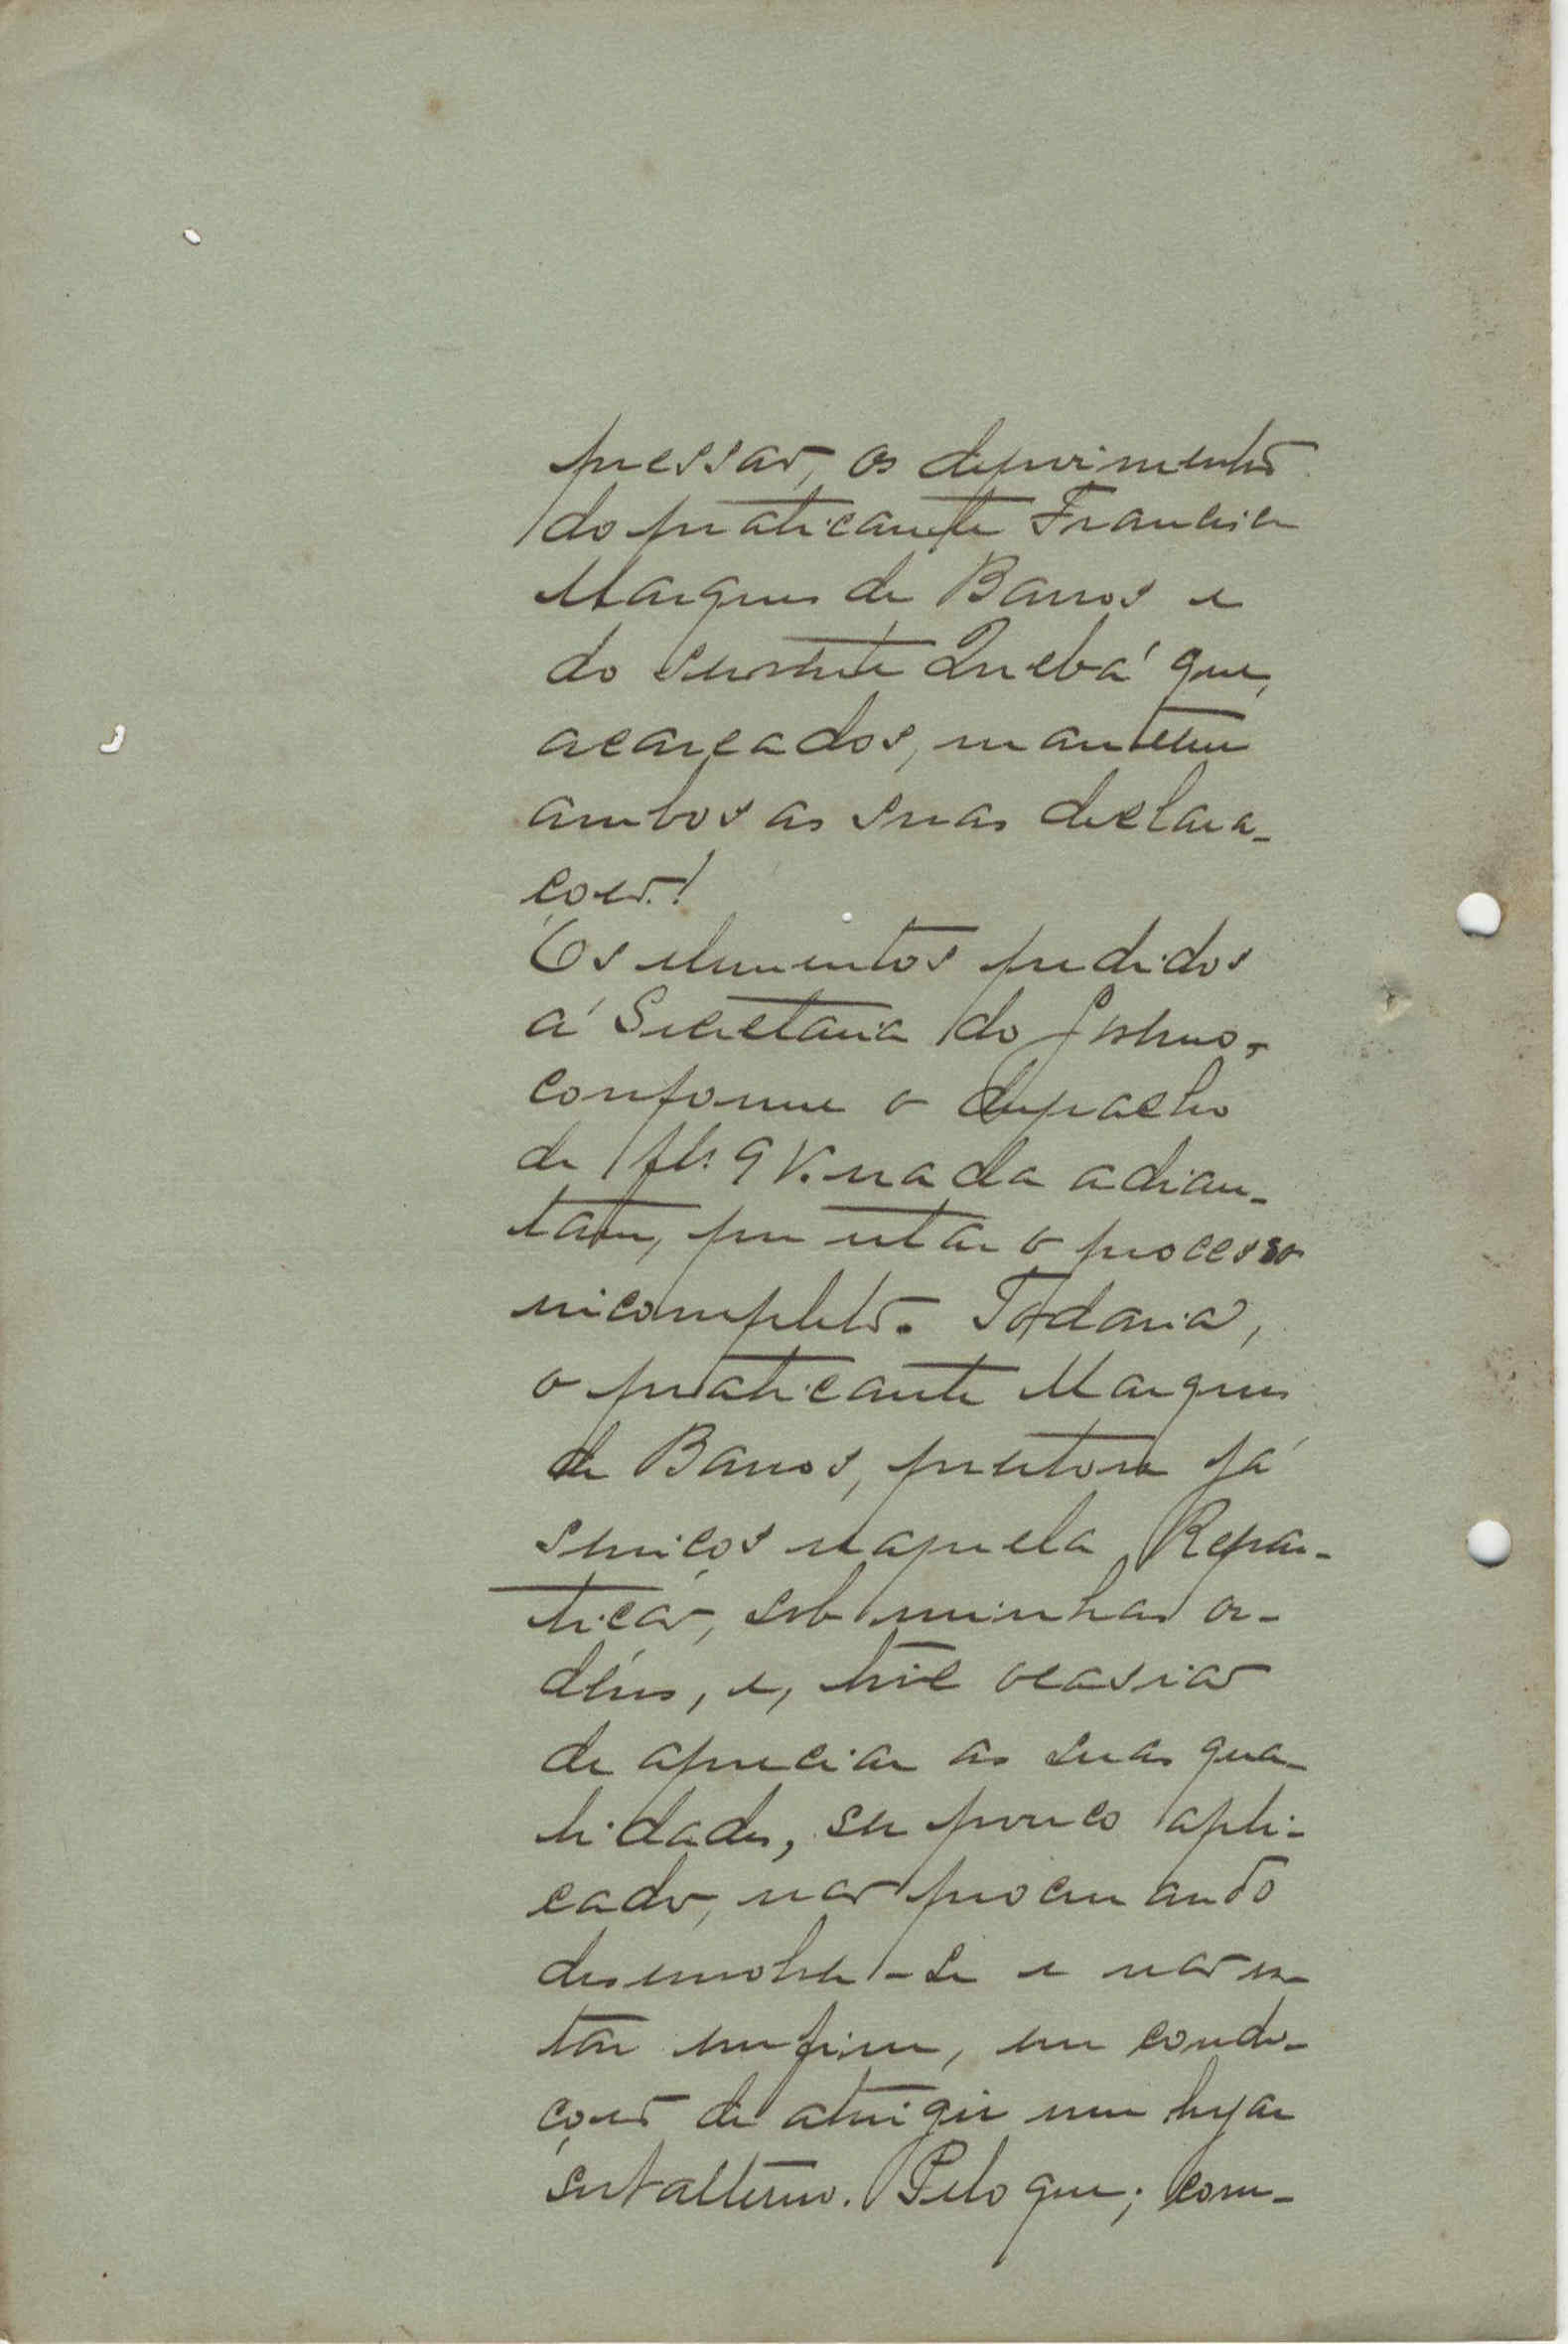 pressão, os depoimentos
do praticante Francisco
Marques de Barros e
do servente Quebá que,
acareados, mantem
ambos as suas declara-
ções!
Os elementos pedidos
á Secretaria do Govêrno,
conforme o despacho
de fls. 9 V. nada adian-
tam, por estar o processo
incompleto. Todavia,
o praticante Marques
de Barros, prestou já
serviços naquela Repar-
tição, sob minhas or-
dens, e, tive ocasião
de apreciar as suas qua-
lidades, ser pouco apli-
cado, não procurando
desenvolver-se e não es-
tar emfim, em condi-
ções de atingir um lugar
subalterno. Pelo que; com-